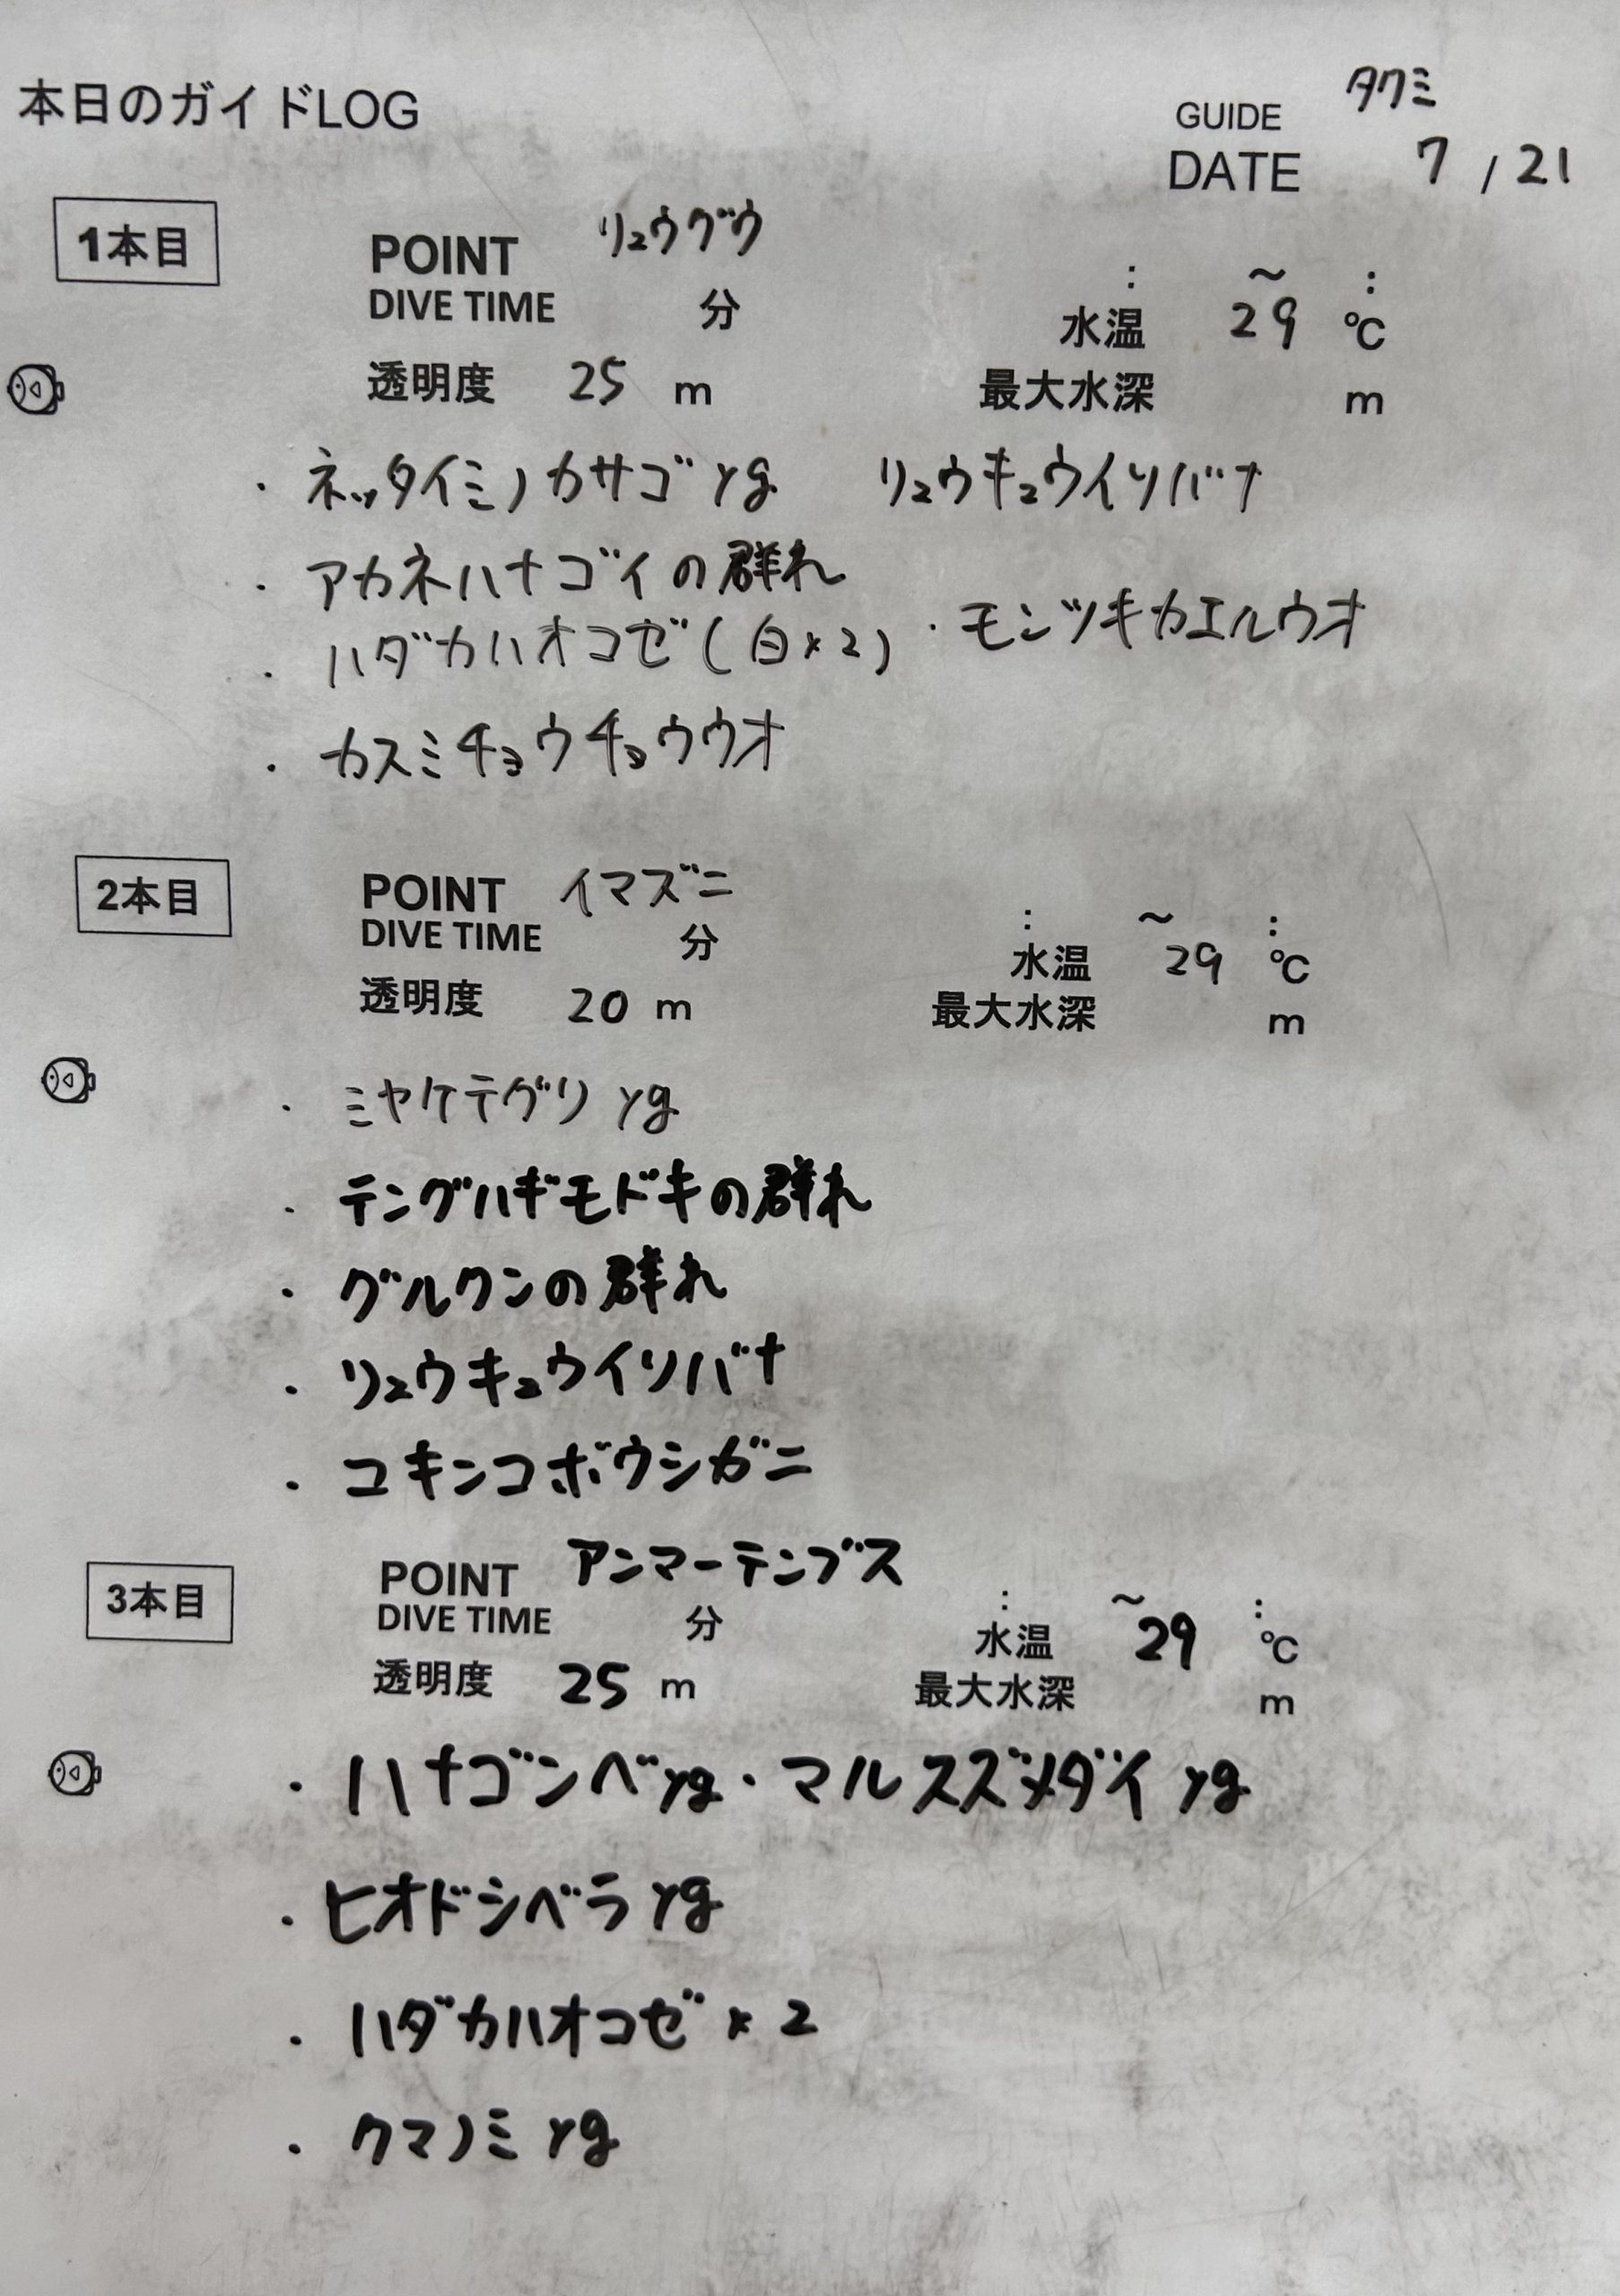 本日のガイドLOG
GUIDE タクミ
DATE 7 / 21
1本目
POINT リュウグウ
: ~ :
DIVE TIME 分 水温 29 ℃
透明度 25 m 最大水深 m
・ネッタイミノカサゴyg リュウキュウイソバナ
・アカネハナゴイの群れ
・ハダカハオコゼ(白×2) ・モンツキカエルウオ
・カスミチョウチョウウオ
2本目
POINT イマズニ
: ~ :
DIVE TIME 分 水温 29 ℃
透明度 20 m 最大水深 m
・ミヤケテグリ yg
・テングハギモドキの群れ
・グルクンの群れ
・リュウキュウイソバナ
・ユキンコボウシガニ
3本目
POINT アンマーテンブス
: ~ :
DIVE TIME 分 水温 29 ℃
透明度 25 m 最大水深 m
・ハナゴンベyg・マルスズメダイ yg
・ヒオドシベラ yg
・ハダカハオコゼ×2
・クマノミ yg